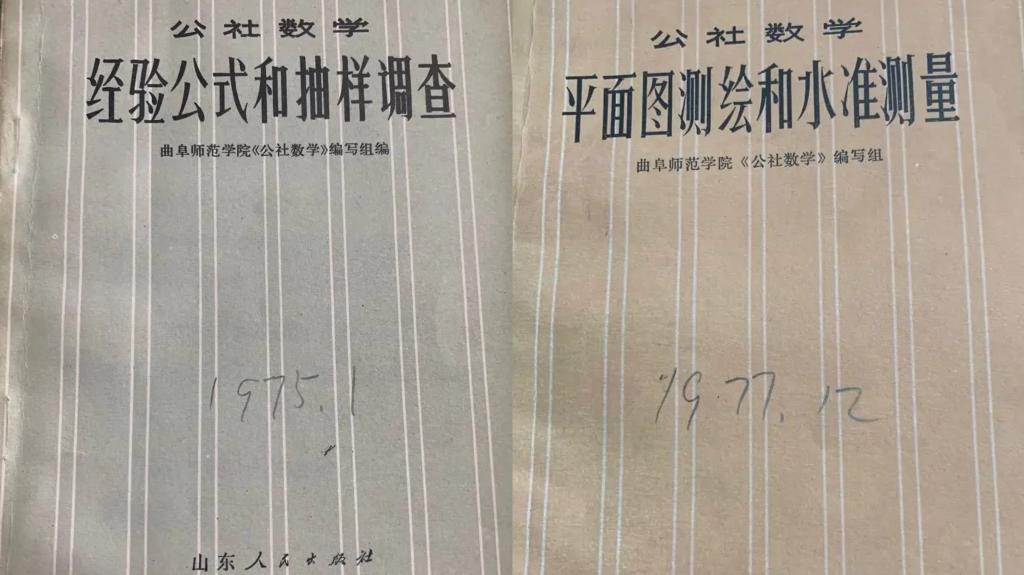 公社数学
经验公式和抽样调查
曲阜师范学院《公社数学》编写组编
1975.1
山东人民出版社
公社数学
平面图测绘和水准测量
曲阜师范学院《公社数学》编写组
1977.12